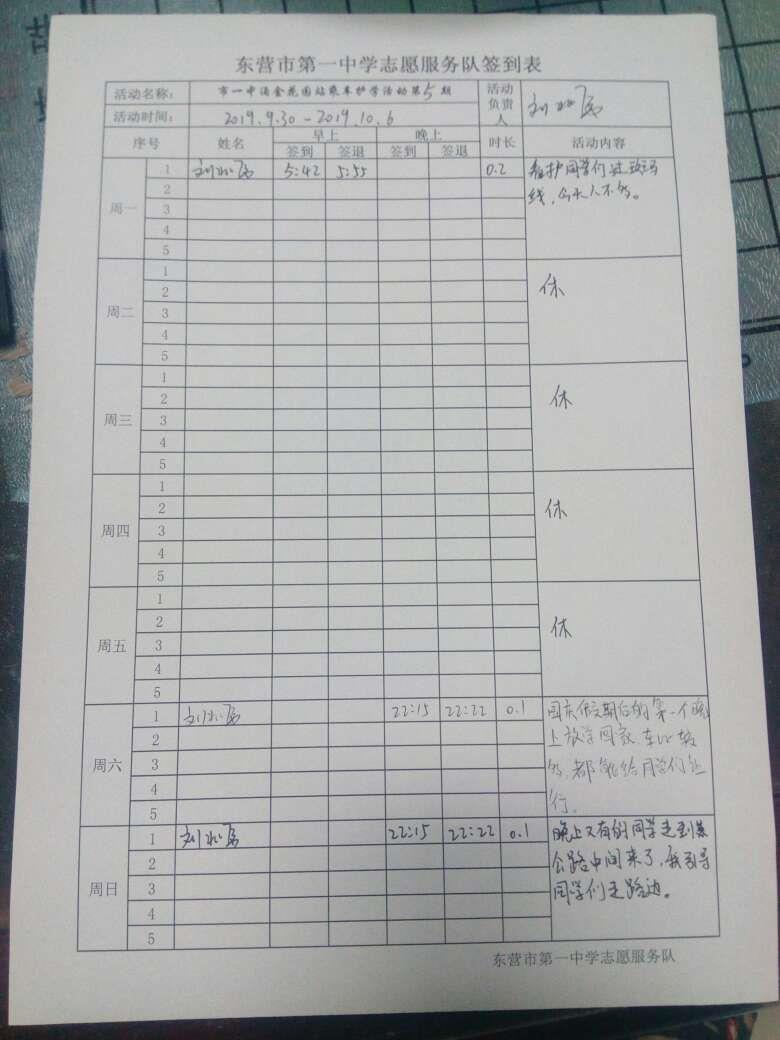 东营市第一中学志愿服务队签到表
活动名称： 市一中涌金花园站乘车护学活动第5期 活动负责人 刘
活动时间： 2019.9.30 - 2019.10.6
序号 姓名 早上 晚上 时长 活动内容
签到 签退 签到 签退
周一 1 刘 5:42 5:55 0.2 维护同学们过斑马
2 线，今天人不多。
3
4
5
周二 1
2 休
3
4
5
周三 1
2 休
3
4
5
周四 1
2 休
3
4
5
周五 1
2
3 休
4
5
周六 1 刘 22:15 22:22 0.1 国庆假期后的第一个晚
2 上放学回家，车比较
3 多，都能给同学们
4 行。
5
周日 1 刘 22:15 22:22 0.1 晚上又有的同学走到
2 公路中间来了，我引导
3 同学们走路边。
4
5
东营市第一中学志愿服务队